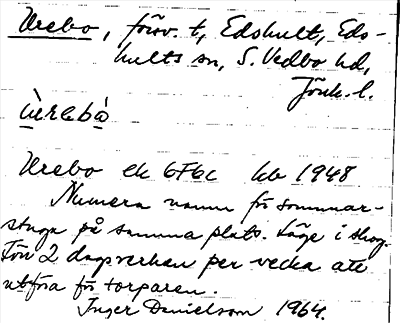 Urebo, förv. t, Edshult, Eds-
hults sn, S. Vedbo hd,
Jönk. l.
ùrebà
Urebo ek 6F6c kb 1948
Numera namn för sommar-
stuga på samma plats. Läge i skog.
Förr 2 dagsverken per vecka att
utföra för torparen.
Inger Danielsson 1964.